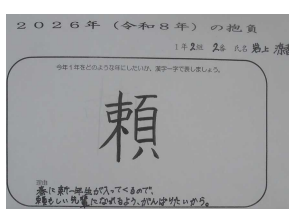 2026年（令和8年）の抱負
1年2組 2番 氏名 岩上
今年1年をどのような年にしたいか、漢字一字で表しましょう。
頼
理由
春に新一年生が入ってくるので、
頼もしい先輩になれるよう、がんばりたいから。